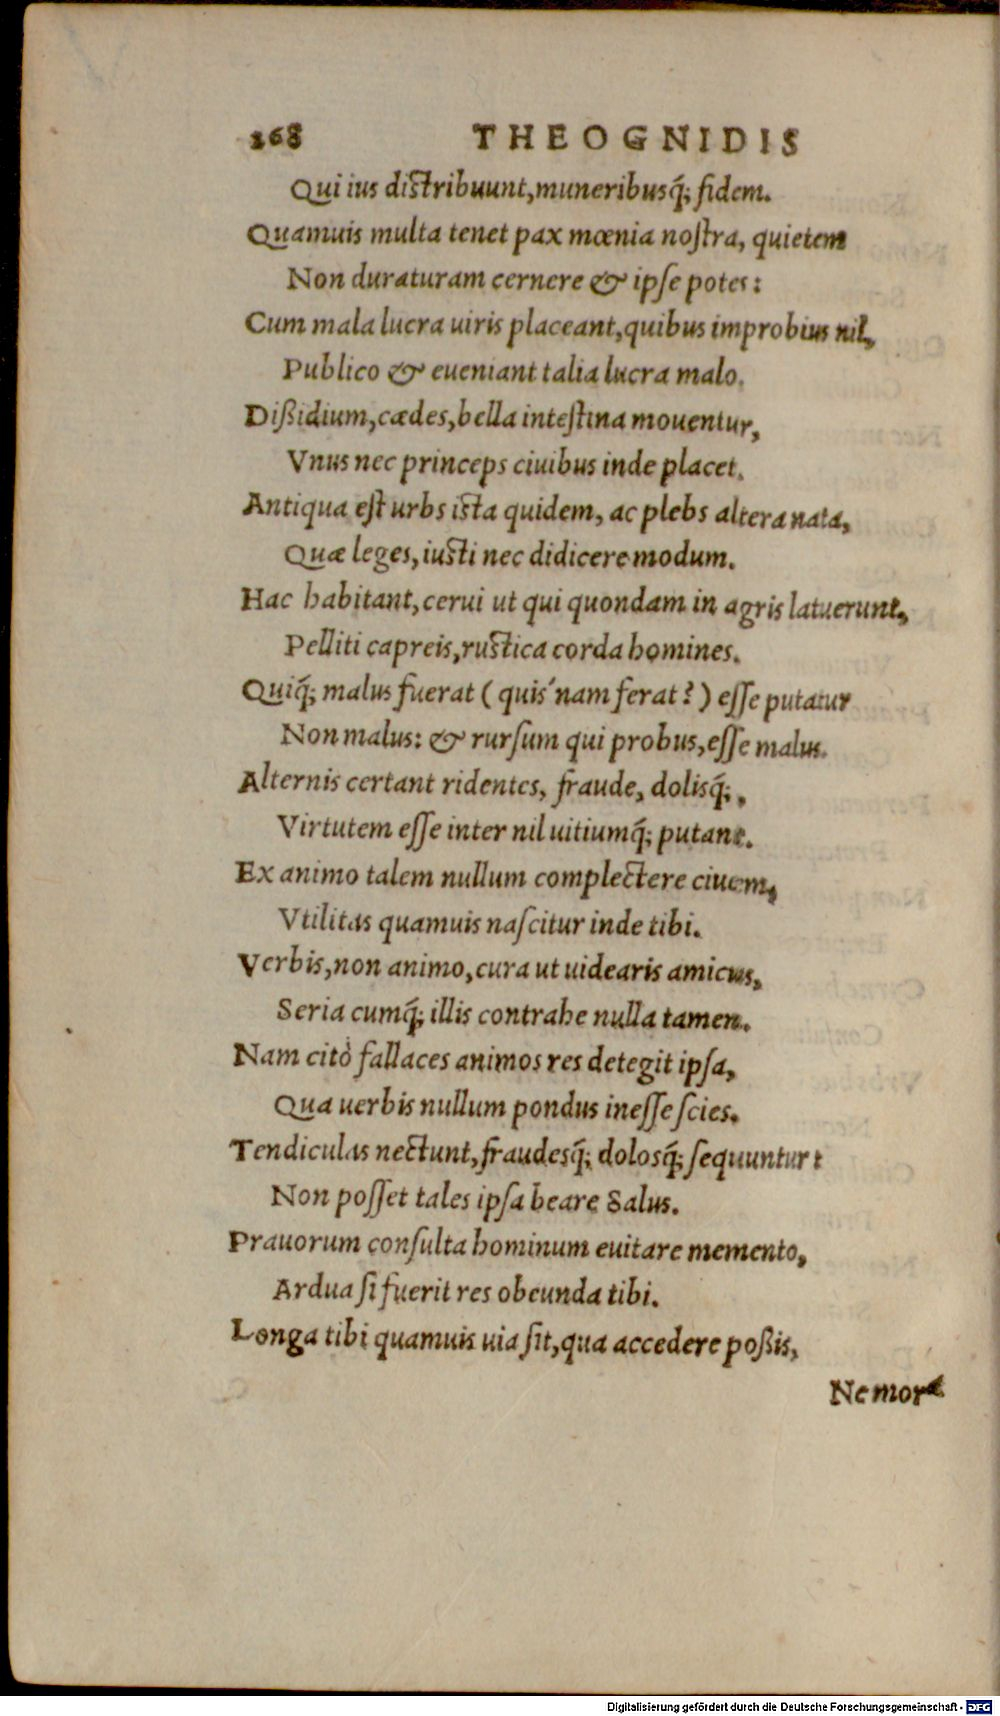 268 THEOGNIDIS
Qui ius distribuunt, muneribusq́; fidem.
Quamuis multa tenet pax mœnia noſtra, quietem
Non duraturam cernere & ipſe potes:
Cum mala lucra uiris placeant, quibus improbius nil,
Publico & eueniant talia lucra malo.
Dißidium, cædes, bella inteſtina mouentur,
Vnus nec princeps ciuibus inde placet.
Antiqua eſt urbs ista quidem, ac plebs altera nata,
Quæ leges, iusti nec didicere modum.
Hac habitant, cerui ut qui quondam in agris latuerunt,
Pelliti capreis, rustica corda homines.
Quiq́; malus fuerat ( quis´nam ferat? ) eſſe putatur
Non malus: & rurſum qui probus, eſſe malus.
Alternis certant ridentes, fraude, dolisq́;,
Virtutem eſſe inter nil uitiumq́; putant.
Ex animo talem nullum complectere ciuem,
Vtilitas quamuis naſcitur inde tibi.
Verbis, non animo, cura ut uidearis amicus,
Seria cumq́; illis contrahe nulla tamen.
Nam citò fallaces animos res detegit ipſa,
Qua uerbis nullum pondus ineſſe ſcies.
Tendiculas nectunt, fraudesq́; dolosq́; ſequuntur:
Non poſſet tales ipſa beare Salus.
Prauorum conſulta hominum euitare memento,
Ardua ſi fuerit res obeunda tibi.
Longa tibi quamuis uia ſit, qua accedere poßis,
Ne mora
Digitalisierung gefördert durch die Deutsche Forschungsgemeinschaft - DFG